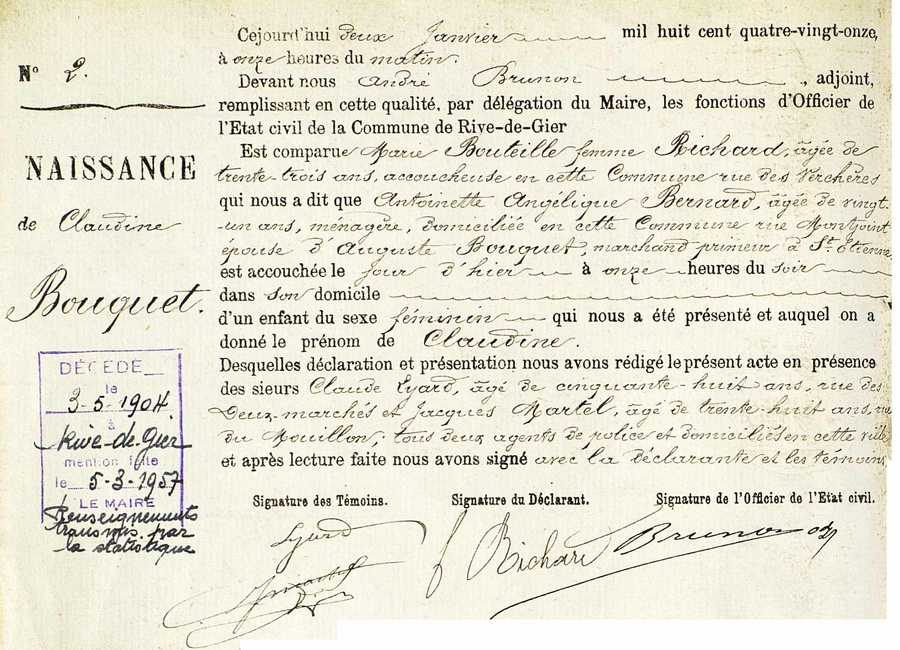 N° 2.
NAISSANCE
de Claudine
Bouquet.
DÉCÉDÉ
le
3-5-1904
à
Rive-de-Gier
mention faite
le 5-3-1957
LE MAIRE
Renseignements
transmis par
la statistique
Cejourd'hui deux Janvier mil huit cent quatre-vingt-onze,
à onze heures du matin.
Devant nous André Brunon, adjoint,
remplissant en cette qualité, par délégation du Maire, les fonctions d'Officier de
l'Etat civil de la Commune de Rive-de-Gier
Est comparue Marie Bouteille femme Richard, âgée de
trente-trois ans, accoucheuse en cette Commune rue des Verchères
qui nous a dit que Antoinette Angélique Bernard, âgée de vingt-
-un ans, ménagère, domiciliée en cette Commune rue Montjoint
épouse d'Auguste Bouquet, marchand primeur à St. Etienne
est accouchée le jour d'hier à onze heures du soir
dans son domicile
d'un enfant du sexe féminin qui nous a été présenté et auquel on a
donné le prénom de Claudine.
Desquelles déclaration et présentation nous avons rédigé le présent acte en présence
des sieurs Claude Eyard, âgé de cinquante-huit ans, rue des
Deux-marchés et Jacques Martel, âgé de trente-huit ans, rue
du Mouillon, tous deux agents de police et domiciliés en cette ville
et après lecture faite nous avons signé avec la Déclarante et les témoins
Signature des Témoins. Signature du Déclarant. Signature de l'Officier de l'Etat civil.
Eyard
f Richard Brunon adj